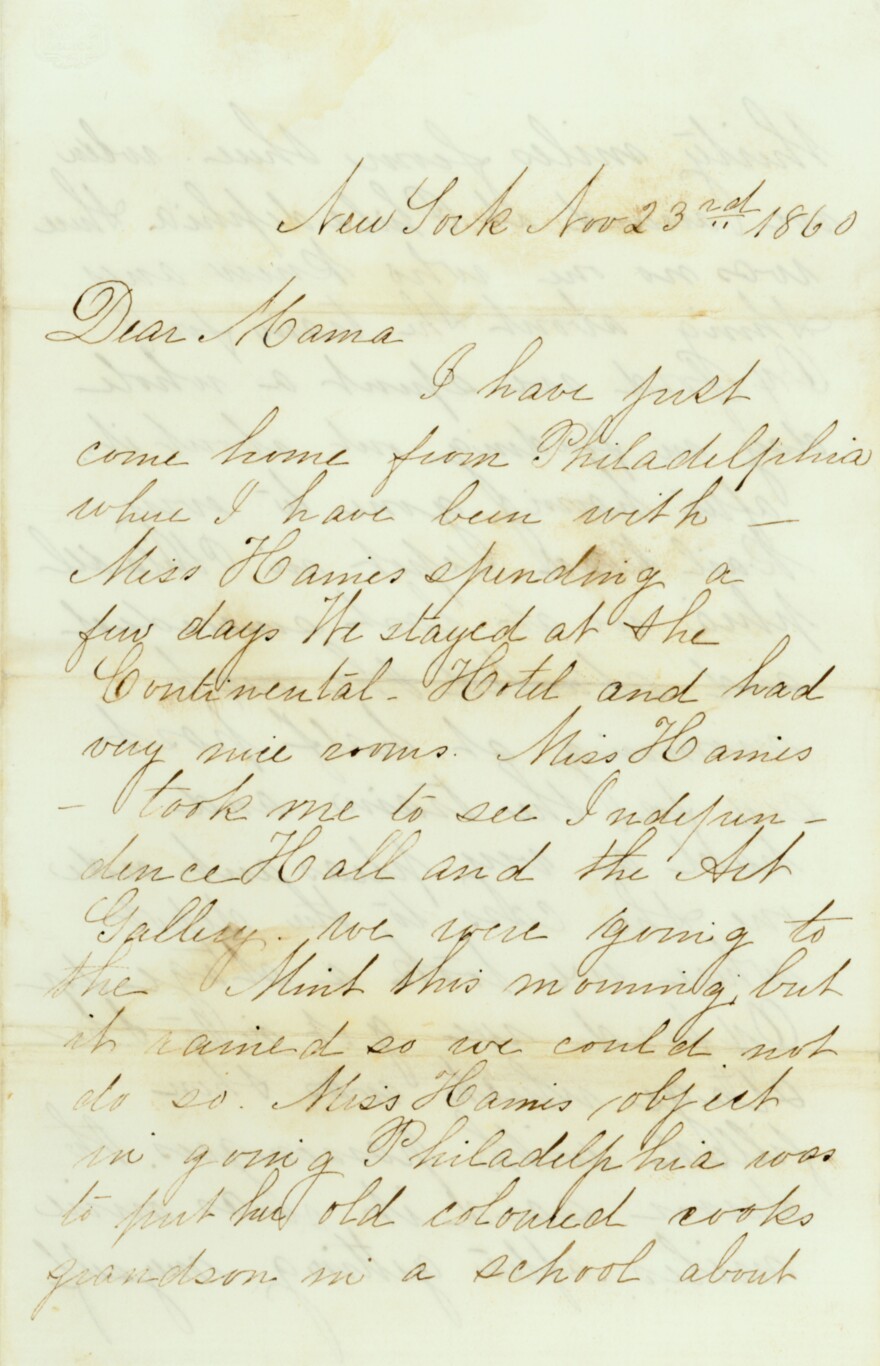 New York Nov 23rd 1860
Dear Mama
I have just
come home from Philadelphia
where I have been with —
Miss Haines spending a
few days We stayed at the
Continental - Hotel and had
very nice rooms. Miss Haines
- took me to see Indepen -
dence Hall and the Art
Gallery. we were going to
the Mint this morning, but
it rained so we could not
do so. Miss Haines object
in going Philadelphia was
to put her old coloured cooks
grandson in a school about